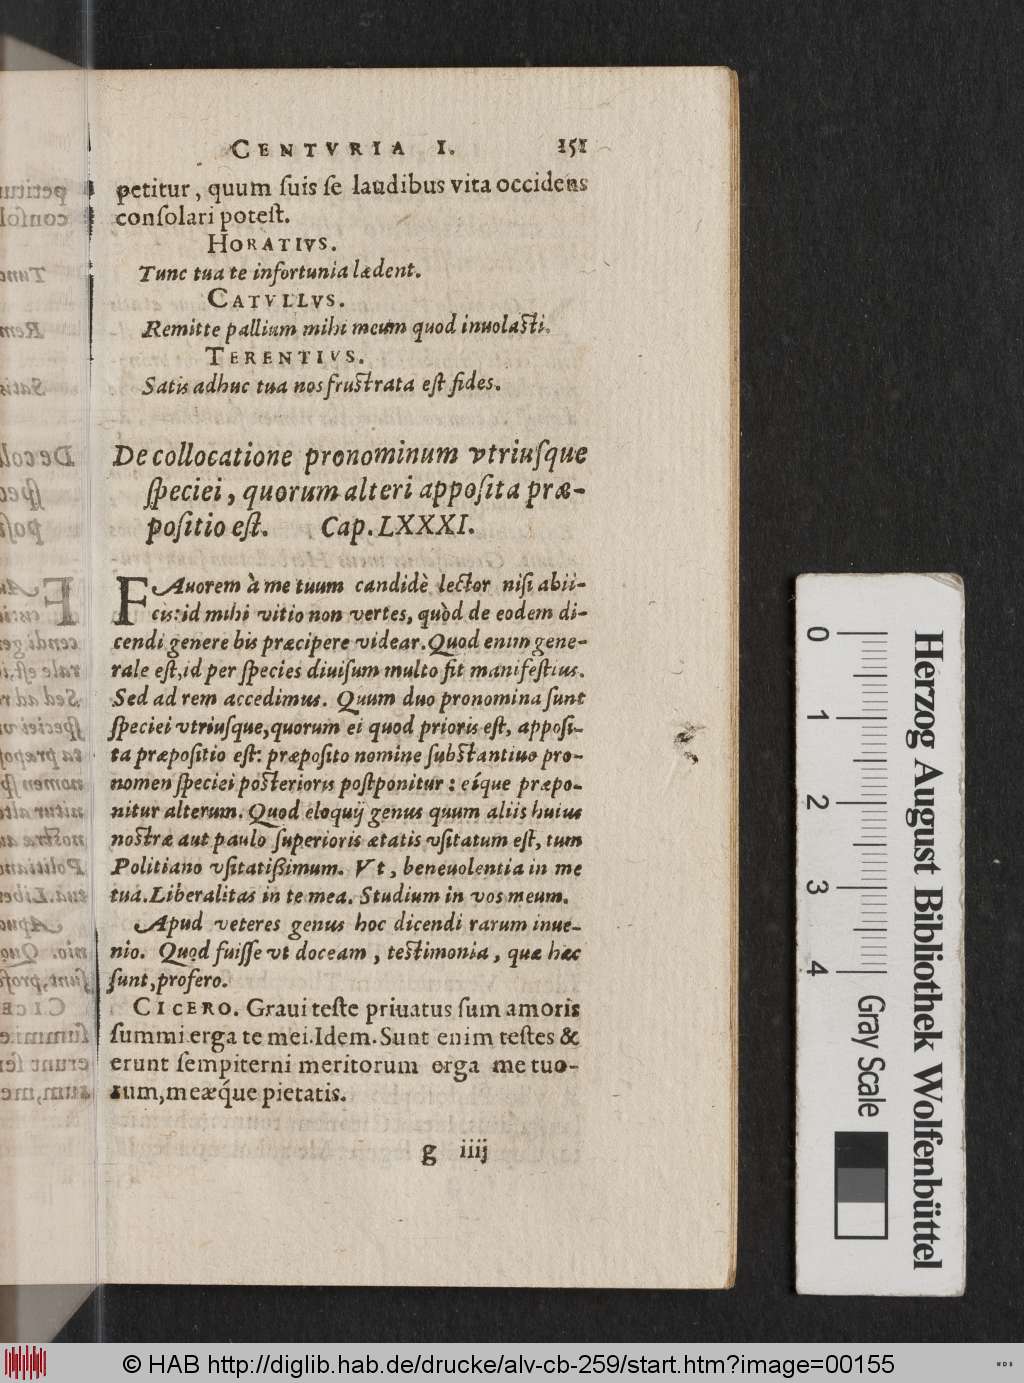 CENTVRIA I. 151
petitur, quum ſuis ſe laudibus vita occidens
conſolari poteſt.
HORATIVS.
Tunc tua te infortunia lædent.
CATVLLVS.
Remitte pallium mihi meum quod inuolaſti.
TERENTIVS.
Satis adhuc tua nos fruſtrata eſt fides.
De collocatione pronominum vtriuſque
ſpeciei, quorum alteri appoſita præ-
poſitio eſt. Cap. LXXXI.
FAuorem à me tuum candidè lector niſi abii-
cis: id mihi vitio non vertes, quòd de eodem di-
cendi genere bis præcipere videar. Quod enim gene-
rale eſt, id per ſpecies diuiſum multo fit manifeſtius.
Sed ad rem accedimus. Quum duo pronomina ſunt
ſpeciei vtriuſque, quorum ei quod prioris eſt, appoſi-
ta præpoſitio eſt: præpoſito nomine ſubſtantiuo pro-
nomen ſpeciei poſterioris poſtponitur: eíque præpo-
nitur alterum. Quod eloquij genus quum aliis huius
noſtræ aut paulo ſuperioris ætatis vſitatum eſt, tum
Politiano vſitatißimum. Vt, beneuolentia in me
tua. Liberalitas in te mea. Studium in vos meum.
Apud veteres genus hoc dicendi rarum inue-
nio. Quod fuiſſe vt doceam, teſtimonia, quæ hæc
ſunt, profero.
CICERO. Graui teſte priuatus ſum amoris
ſummi erga te mei. Idem. Sunt enim teſtes &
erunt ſempiterni meritorum erga me tuo-
rum, meǽque pietatis.
g iiij
0 1 2 3 4
Gray Scale
Herzog August Bibliothek Wolfenbüttel
© HAB http://diglib.hab.de/drucke/alv-cb-259/start.htm?image=00155